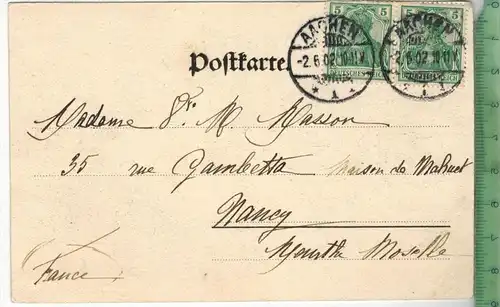 5 5
AACHEN AACHEN
-2.6.02.10-11V. -2.6.02.10-11V.
DEUTSCHES REICH
* 1 *
Postkarte
Madame Vve M. Masson
35 rue Gambetta Maison de Mahuet
Nancy
Meurthe Moselle
France